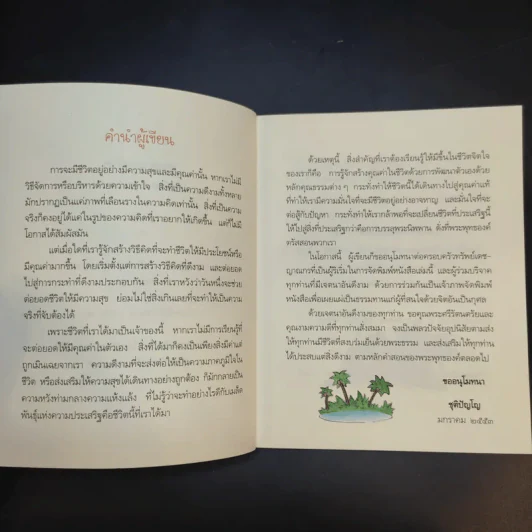 คำนำผู้เขียน
การจะมีชีวิตอยู่อย่างมีความสุขและมีคุณค่านั้น หากเราไม่มี
วิธีจัดการหรือบริหารด้วยความเข้าใจ สิ่งที่เป็นความดีงามทั้งหลาย
มักปรากฏเป็นแค่ภาพที่เลือนรางในความคิดเท่านั้น สิ่งที่เป็นความ
จริงก็คงอยู่ได้แค่ในรูปของความคิดที่เราอยากให้เกิดขึ้น แต่ก็ไม่มี
โอกาสได้สัมผัสมัน
แต่เมื่อใดที่เรารู้จักสร้างวิธีคิดที่จะทำชีวิตให้มีประโยชน์หรือ
มีคุณค่ามากขึ้น โดยเริ่มตั้งแต่การสร้างวิธีคิดที่ดีงาม และต่อยอด
ไปสู่การกระทำที่ดีงามประกอบกัน สิ่งที่เราหวังว่าวันหนึ่งจะช่วย
ต่อยอดชีวิตให้มีความสุข ย่อมไม่ใช่สิ่งเกินเลยที่จะทำให้เป็นความ
จริงที่จับต้องได้
เพราะชีวิตที่เราได้มาเป็นเจ้าของนี้ หากเราไม่มีการเรียนรู้ที่
จะต่อยอดให้มีคุณค่าในตัวเอง สิ่งที่ได้มาก็คงเป็นเพียงสิ่งมีค่าแต่
ถูกเมินเฉยจากเรา ความดีงามที่จะส่งต่อให้เป็นความภาคภูมิใจใน
ชีวิต หรือส่งเสริมให้ความสุขได้เดินทางอย่างถูกต้อง ก็มักกลายเป็น
ความหวังท่ามกลางความแห้งแล้ง ที่ไม่รู้ว่าจะทำอย่างไรดีกับเมล็ด
พันธุ์แห่งความประเสริฐคือชีวิตนี้ที่เราได้มา
ด้วยเหตุนี้ สิ่งสำคัญที่เราต้องเรียนรู้ให้มีขึ้นในชีวิตจิตใจ
ของเราก็คือ การรู้จักสร้างคุณค่าในชีวิตด้วยการพัฒนาตัวเองด้วย
หลักคุณธรรมต่าง ๆ กระทั่งทำให้ชีวิตนี้ได้เดินทางไปสู่คุณค่าแท้
ที่ทำให้เรามีความมั่นใจที่จะมีชีวิตอยู่อย่างอาจหาญ และมั่นใจที่จะ
ต่อสู้กับปัญหา กระทั่งทำให้เรากล้าพอที่จะเปลี่ยนชีวิตที่ประเสริฐนี้
ให้ไปสู่สิ่งที่ประเสริฐกว่าคือการบรรลุพระนิพพาน ดั่งที่พระพุทธองค์
ตรัสสอนพวกเรา
ในโอกาสนี้ ผู้เขียนก็ขออนุโมทนาต่อครอบครัวทรัพย์เดช-
ญาณการที่เป็นผู้ริเริ่มในการจัดพิมพ์หนังสือเล่มนี้ และผู้ร่วมบริจาค
ทุกท่านที่มีเจตนาอันดีงาม ด้วยการร่วมกันเป็นเจ้าภาพจัดพิมพ์
หนังสือเพื่อเผยแผ่เป็นธรรมทานแก่ผู้ที่สนใจด้วยจิตอันเป็นกุศล
ด้วยเจตนาอันดีงามของทุกท่าน ขอคุณพระศรีรัตนตรัยและ
คุณงามความดีที่ทุกท่านสั่งสมมา จงเป็นพลวปัจจัยอุปนิสัยตามส่ง
ให้ทุกท่านมีชีวิตที่สงบร่มเย็นด้วยพระธรรม และส่งเสริมให้ทุกท่าน
ได้ประสบแต่สิ่งดีงาม ตามหลักคำสอนของพระพุทธองค์ตลอดไป
ขออนุโมทนา
ชุติปัญโญ
มกราคม ๒๕๕๓